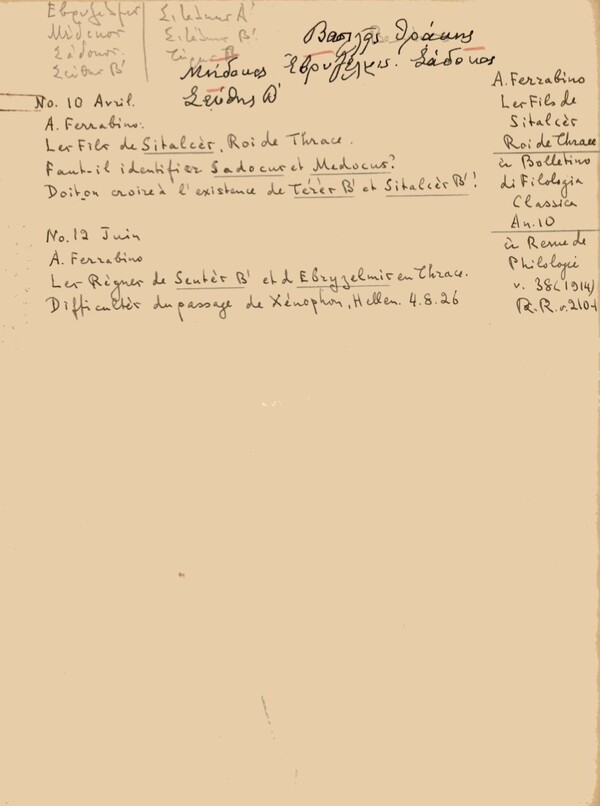 Εβρυζέλμις
Μήδοκος
Σάδοκος
Σεύθης Β'
Σιτάλκης Α'
Σιτάλκης Β'
Τήρης Β
Θράκης
Μήδοκος Εβρυζέλμις. Σάδοκος
Σεύθης Β'
No. 10 Avril.
A. Ferrabino.
Les Fils de Sitalcès, Roi de Thrace.
Faut-il identifier Sadocus et Medocus?
Doit on croire à l'existence de Térès B' et Sitalcès B'!
No. 12 Juin
A. Ferrabino
Les Règnes de Seutès B' et d Ebryzelmis en Thrace.
Difficultés du passage de Xénophon, Hellen. 4.8.26
A. Ferrabino
Les Fils de
Sitalcès
Roi de Thrace
à Bolletino
di Filologia
Classica
An. 10
à Revue de
Philologie
v. 38 (1914)
R. R. v. 210